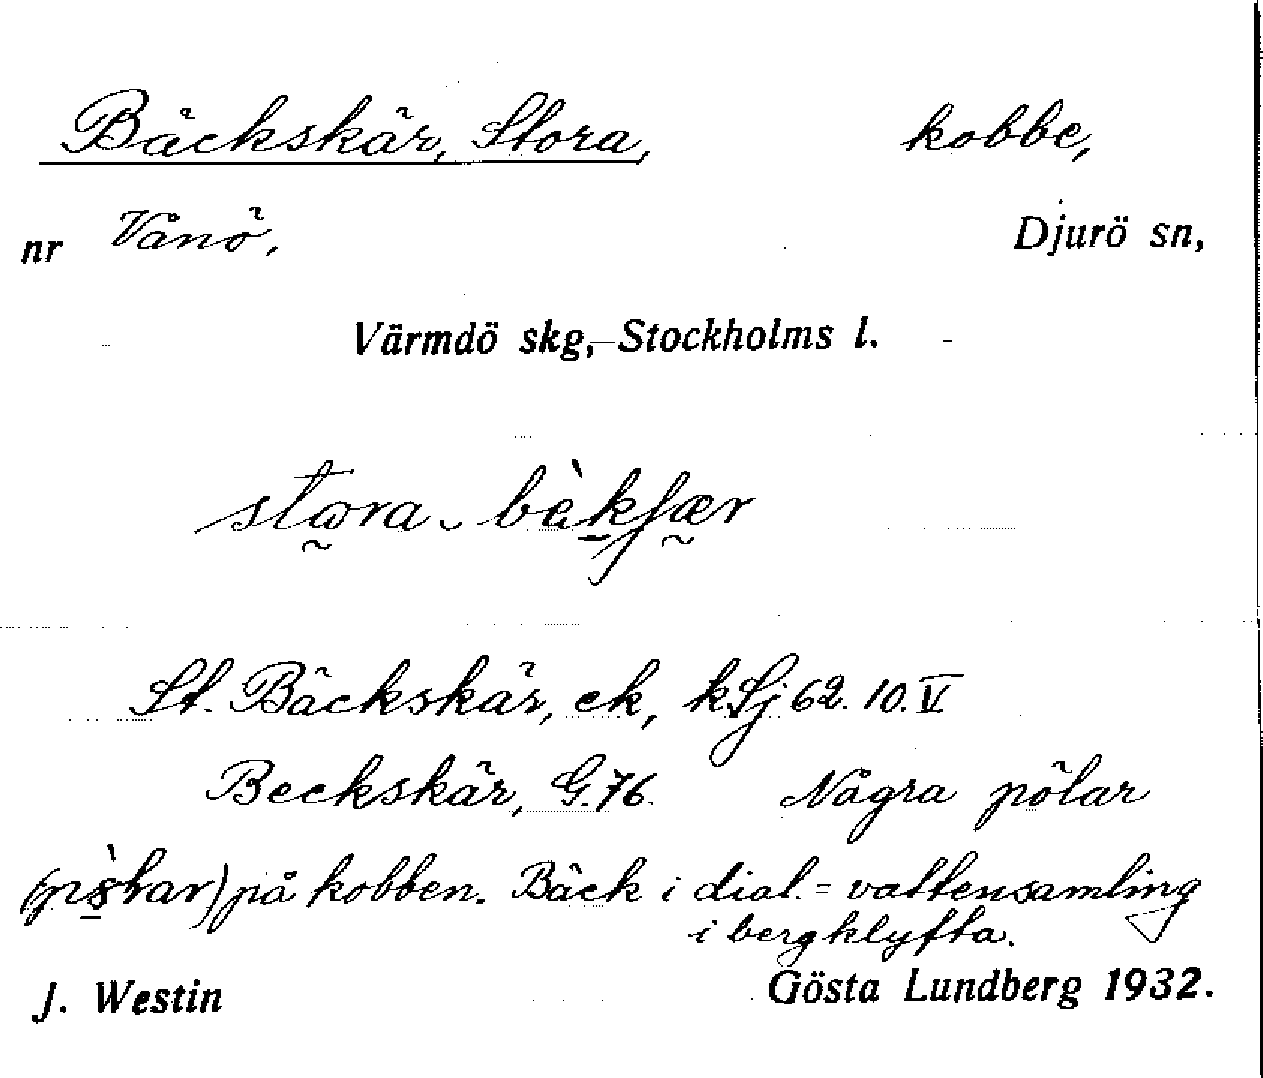 Bäckskär, Stora, kobbe,
nr Vånö, Djurö sn,
Värmdö skg, Stockholms l.
stɷra bèkʃær
St. Bäckskär, ek, kSj 62. 10. V
Beckskär, G. 76. Några pölar
på kobben. Bäck i dial. = vattensamling
i bergklyfta.
J. Westin Gösta Lundberg 1932.